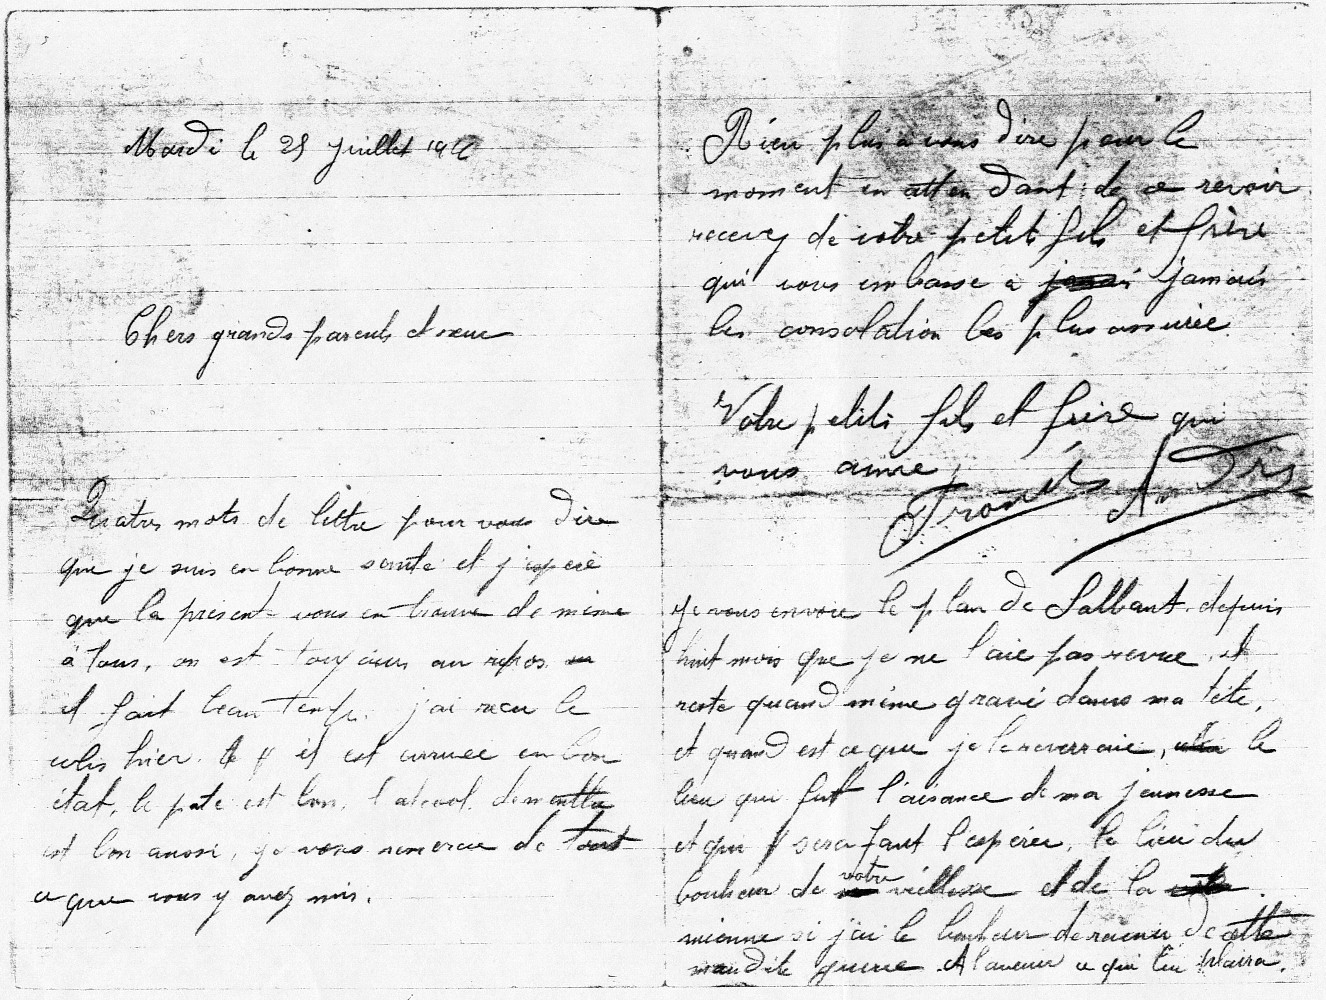 Mardi le 25 Juillet 191
Chers grands parents et sœur
Quatres mots de lettre pour vous dire
que je suis en bonne santé et j'espère
que la présent vous en trouve de même
à tous, on est toujours au repos
il fait beau temp. j'ai recu le
colis hier. il est arrivée en bon
état, le pate est bon, l'alcool de menthe
est bon aussi, je vous remercie de tout
ce que vous y avez mis.
Rien plus a vous dire pour le
moment en attendant de ce revoir
recevez de votre petits fils et frère
qui vous embasse a jamais
les consolation les plus assurée
Votre petits fils et frère qui
vous aime
François André
Je vous envoie le plan de Salbant depuis
huit mois que je ne l'aie pas revue, il
reste quand même gravé dans ma tête,
et quand est ce que je le reverraie, le
lieu qui fut l'aisance de ma jeunesse
et qui sera faut l'espérer, le lieu du
bonheur de votre vieillesse et de la
mienne si j'ai le bonheur de revenir de cette
maudite guerre. A l'avenir ce qui lui plaira.